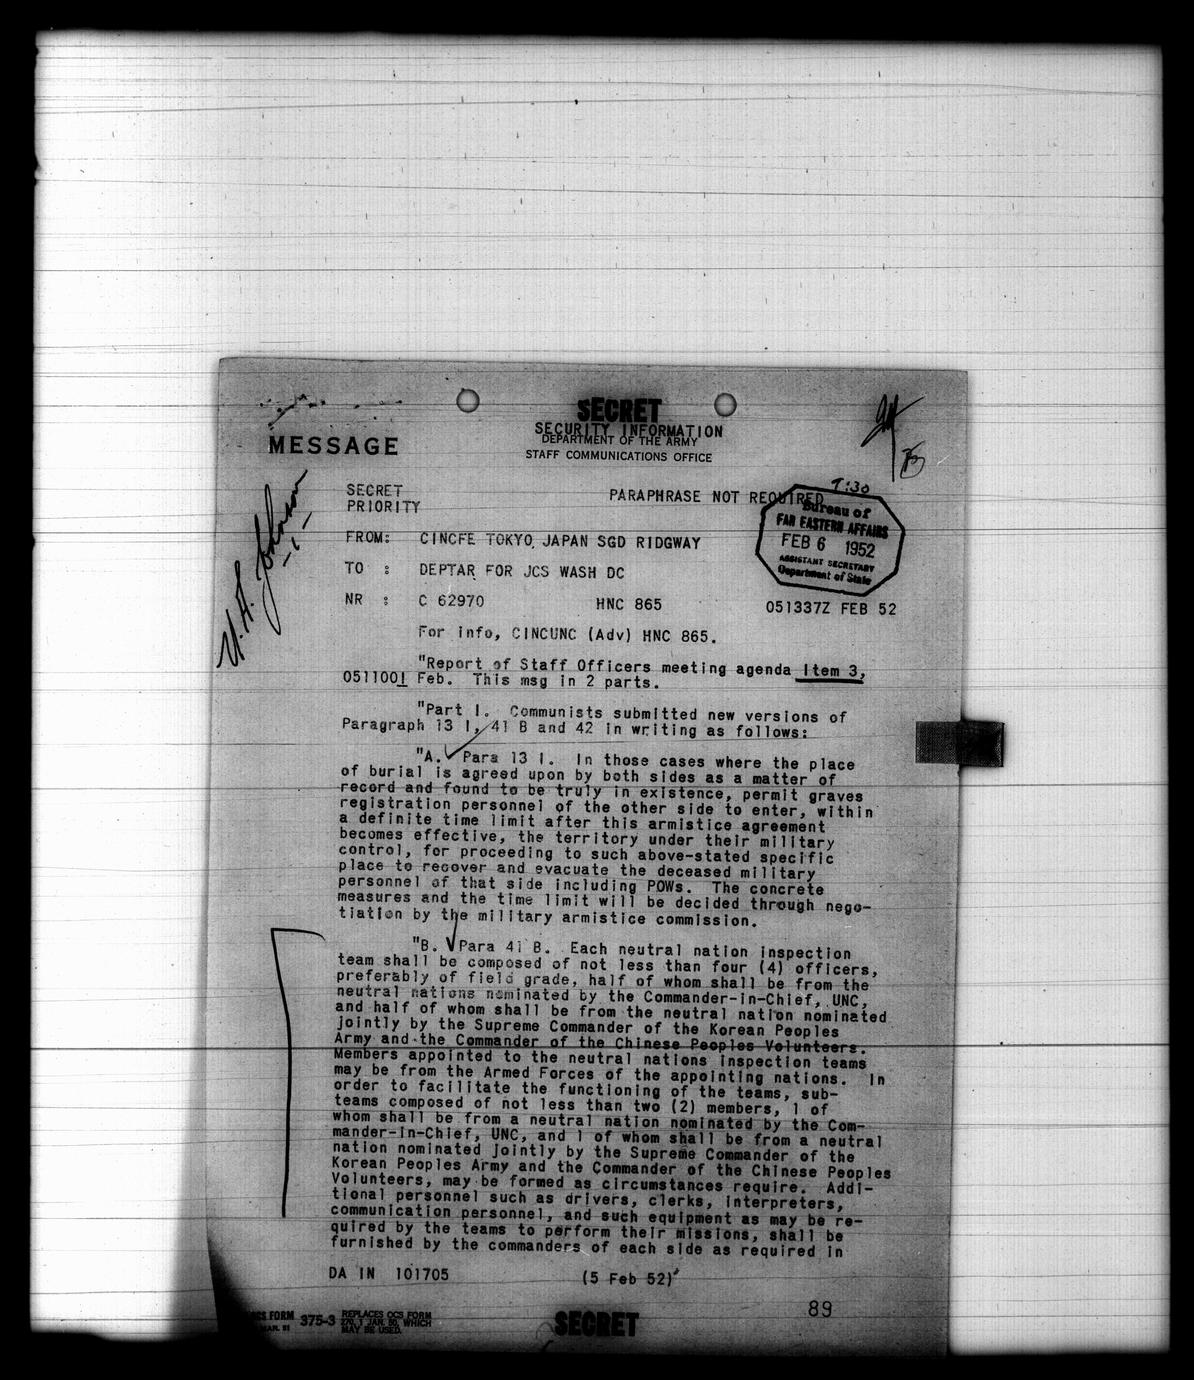 SECRET
SECURITY INFORMATION
DEPARTMENT OF THE ARMY
STAFF COMMUNICATIONS OFFICE
MESSAGE
U. A. Johnson
-1-
SECRET
PARAPHRASE NOT REQUIRED
PRIORITY
7:30
Bureau of
FAR EASTERN AFFAIRS
FEB 6 1952
ASSISTANT SECRETARY
Department of State
FROM: CINCFE TOKYO JAPAN SGD RIDGWAY
TO : DEPTAR FOR JCS WASH DC
NR : C 62970 HNC 865 051337Z FEB 52
For info, CINCUNC (Adv) HNC 865.
"Report of Staff Officers meeting agenda Item 3,
051100I Feb. This msg in 2 parts.
"Part I. Communists submitted new versions of
Paragraph 13 I, 41 B and 42 in writing as follows:
"A. Para 13 I. In those cases where the place
of burial is agreed upon by both sides as a matter of
record and found to be truly in existence, permit graves
registration personnel of the other side to enter, within
a definite time limit after this armistice agreement
becomes effective, the territory under their military
control, for proceeding to such above-stated specific
place to recover and evacuate the deceased military
personnel of that side including POWs. The concrete
measures and the time limit will be decided through nego-
tiation by the military armistice commission.
"B. Para 41 B. Each neutral nation inspection
team shall be composed of not less than four (4) officers,
preferably of field grade, half of whom shall be from the
neutral nations nominated by the Commander-in-Chief, UNC,
and half of whom shall be from the neutral nation nominated
jointly by the Supreme Commander of the Korean Peoples
Army and the Commander of the Chinese Peoples Volunteers.
Members appointed to the neutral nations inspection teams
may be from the Armed Forces of the appointing nations. In
order to facilitate the functioning of the teams, sub-
teams composed of not less than two (2) members, 1 of
whom shall be from a neutral nation nominated by the Com-
mander-in-Chief, UNC, and 1 of whom shall be from a neutral
nation nominated jointly by the Supreme Commander of the
Korean Peoples Army and the Commander of the Chinese Peoples
Volunteers, may be formed as circumstances require. Addi-
tional personnel such as drivers, clerks, interpreters,
communication personnel, and such equipment as may be re-
quired by the teams to perform their missions, shall be
furnished by the commanders of each side as required in
DA IN 101705 (5 Feb 52)
89
OCS FORM 375-3 REPLACES OCS FORM
MAR. 51 370, 1 JAN. 50, WHICH
MAY BE USED.
SECRET